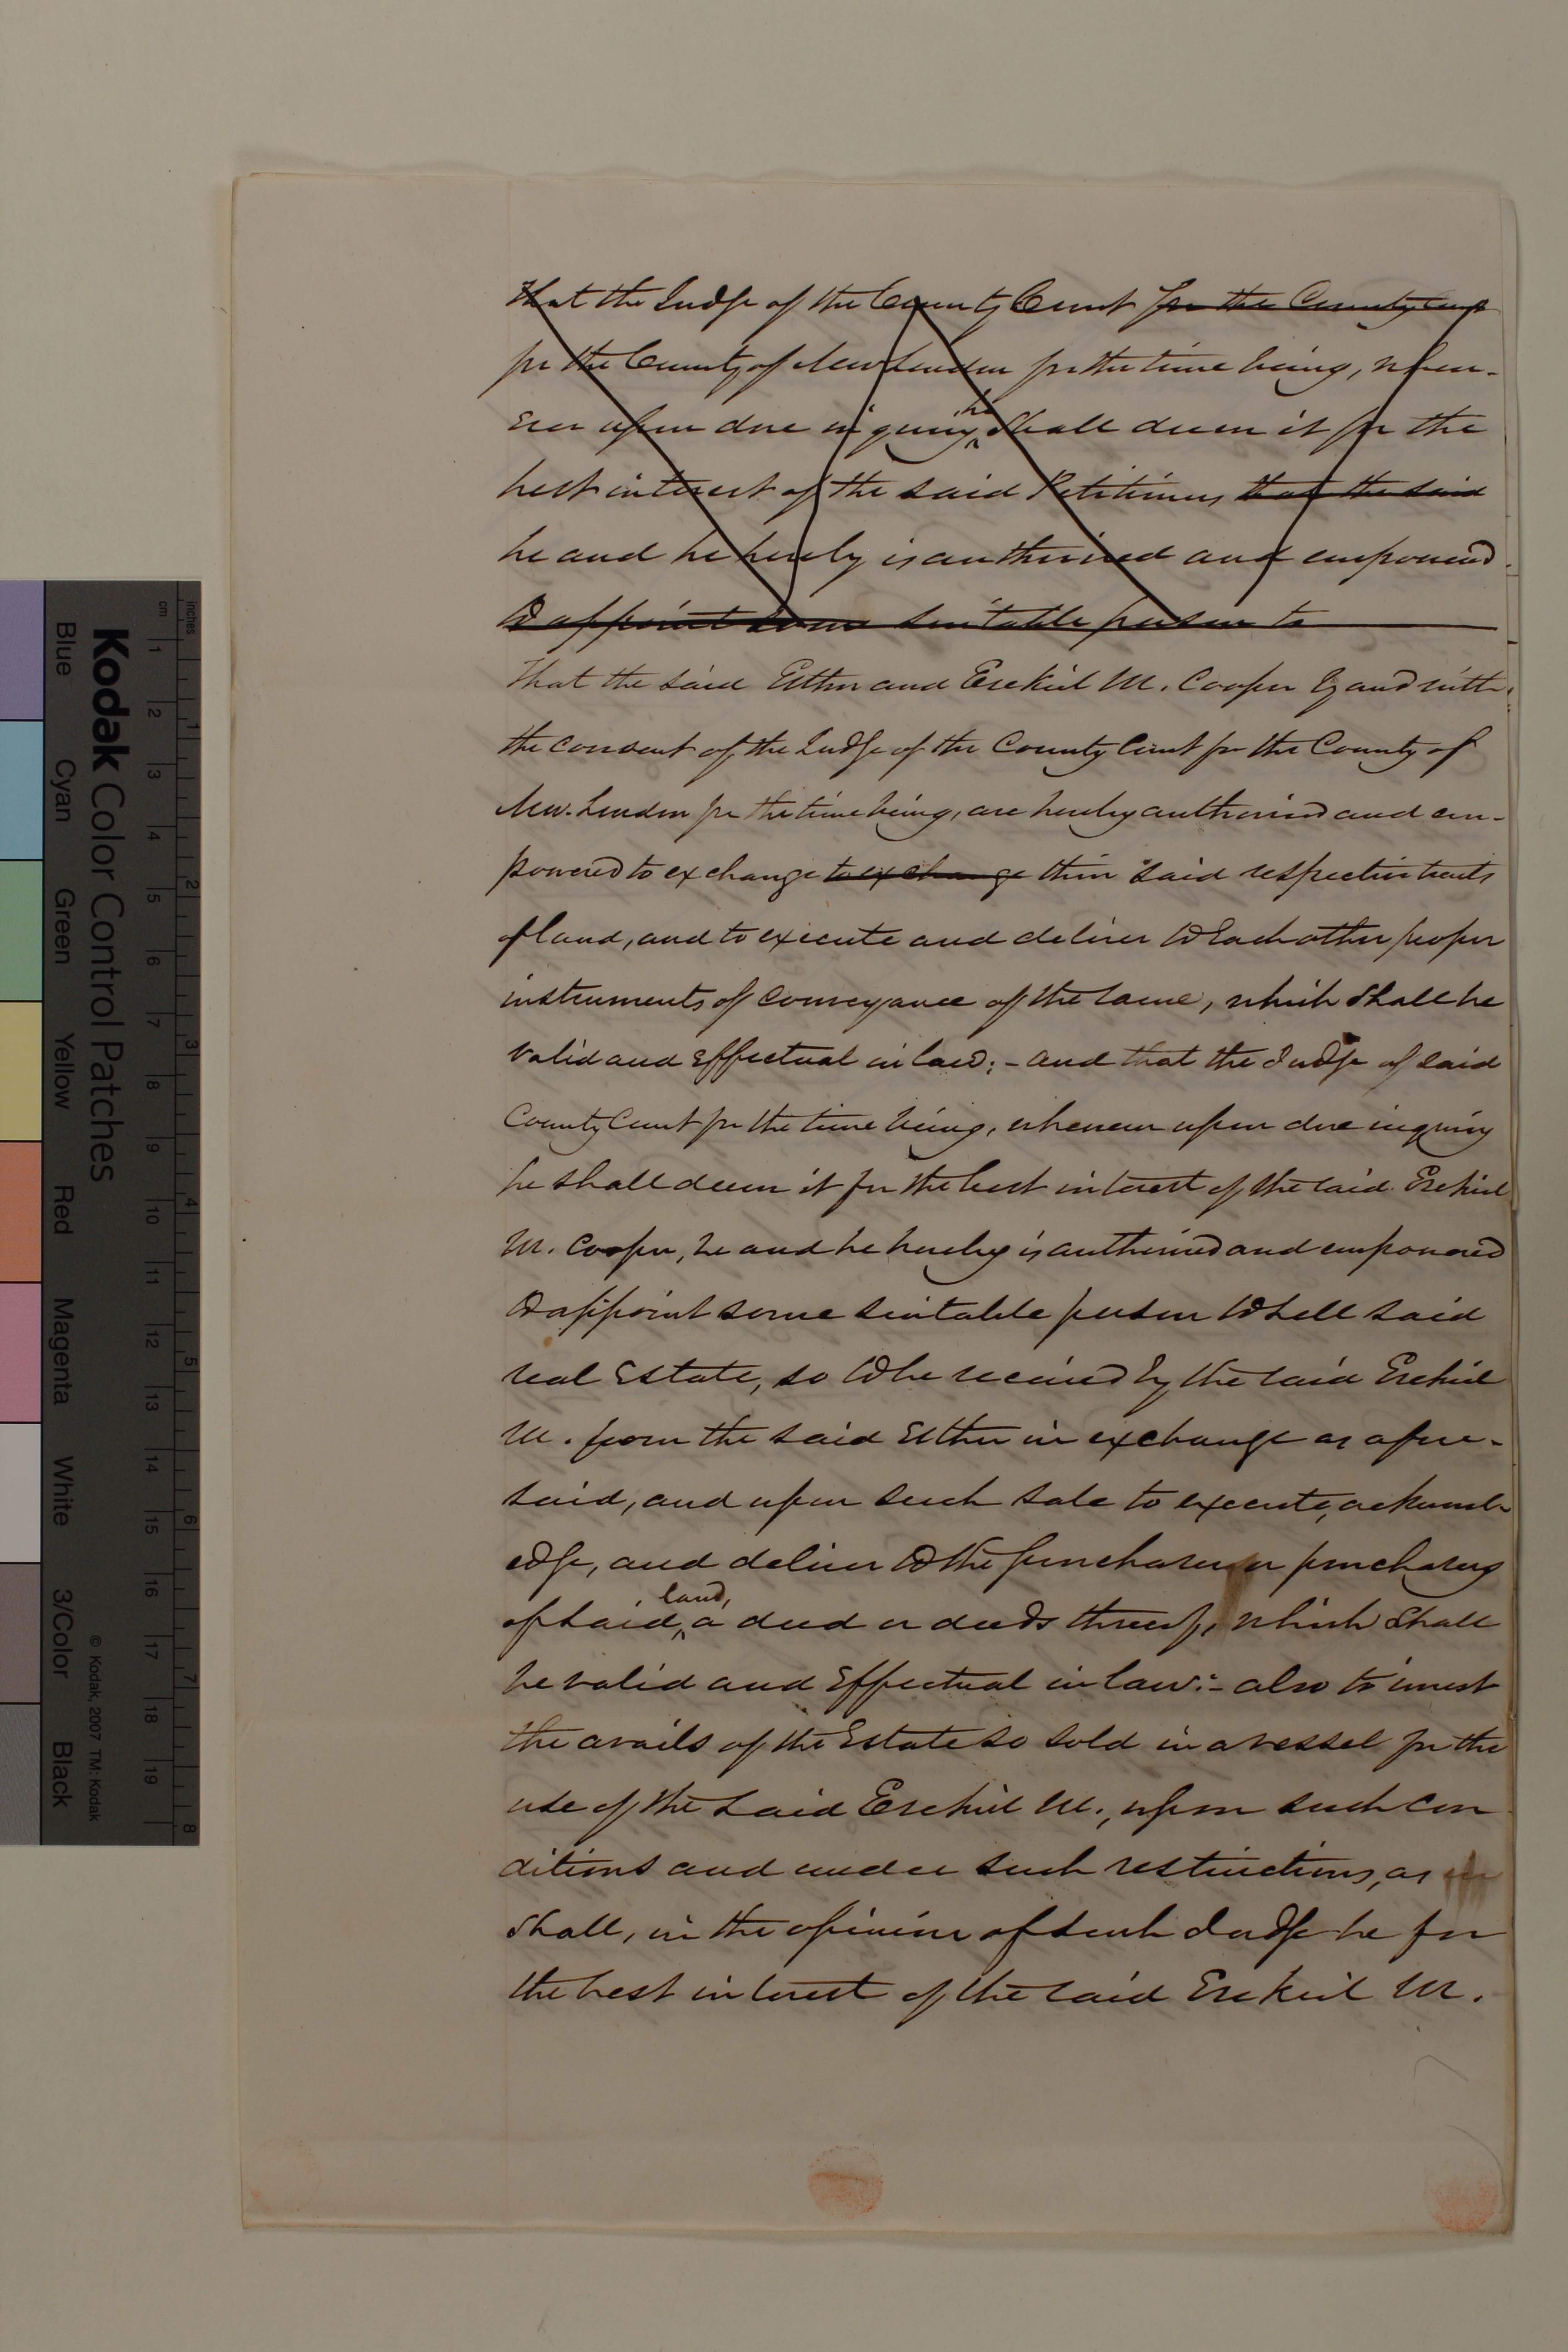 That the Judge of the County Court for the County Court
for the County of New London for the time being, when-
ever upon due inquiry he shall deem it for the
best interest of the said Petitioners that the said
be and he hereby is authorised and empowered
to appoint some suitable person to
That the said Esther and Ezekiel M. Cooper by and with
the consent of the Judge of the County Court for the County of
New-London for the time being, are hereby authorised and em-
powered to exchange to exchange their said respective tracts
of land, and to execute and deliver to each other proper
instruments of conveyance of the same, which shall be
valid and effectual in law; - and that the Judge of said
County Court for the time being, whenever upon due inquiry
he shall deem it for the best interest of the said Ezekiel
M. Cooper, be and he hereby is authorised and empowered
to appoint some suitable person to sell said
real Estate, so to be received by the said Ezekiel
M. from the said Esther in exchange as afore-
said, and upon such sale to execute, acknowl-
edge, and deliver to the purchaser or purchasers
of said land, a deed or deeds thereof, which shall
be valid and effectual in law:- also to invest
the avails of the Estate so sold in a vessel for the
use of the said Ezekiel M., upon such con
ditions and under such restrictions, as
shall, in the opinion of such Judge be for
the best interest of the said Ezekiel M.
Kodak Color Control Patches
Blue Cyan Green Yellow Red Magenta White 3/Color Black
© Kodak, 2007 TM: Kodak
inches 1 2 3 4 5 6 7 8
cm 1 2 3 4 5 6 7 8 9 10 11 12 13 14 15 16 17 18 19